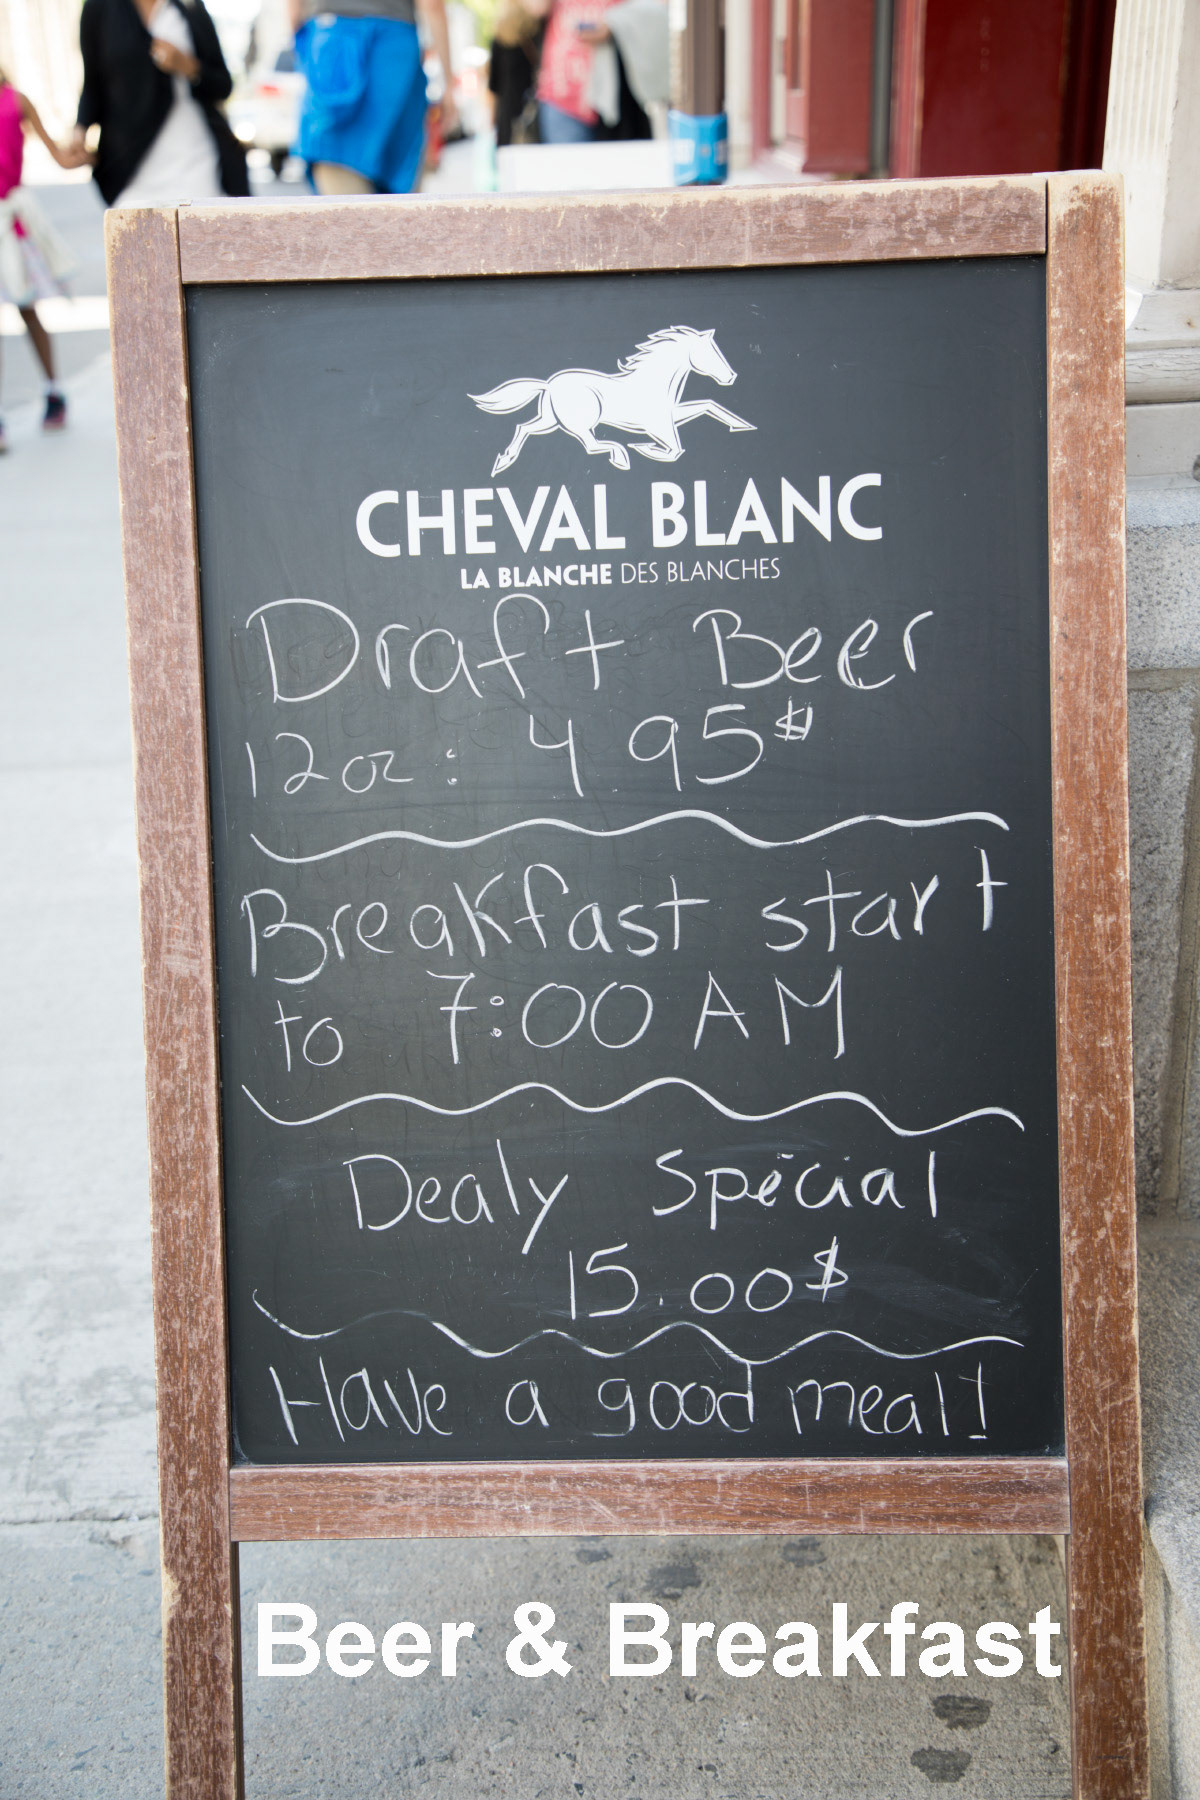 CHEVAL BLANC
LA BLANCHE DES BLANCHES
Draft Beer
12oz: 4.95$
Breakfast start
to 7:00 AM
Dealy Spécial
15.00$
Have a good meal!
Beer & Breakfast